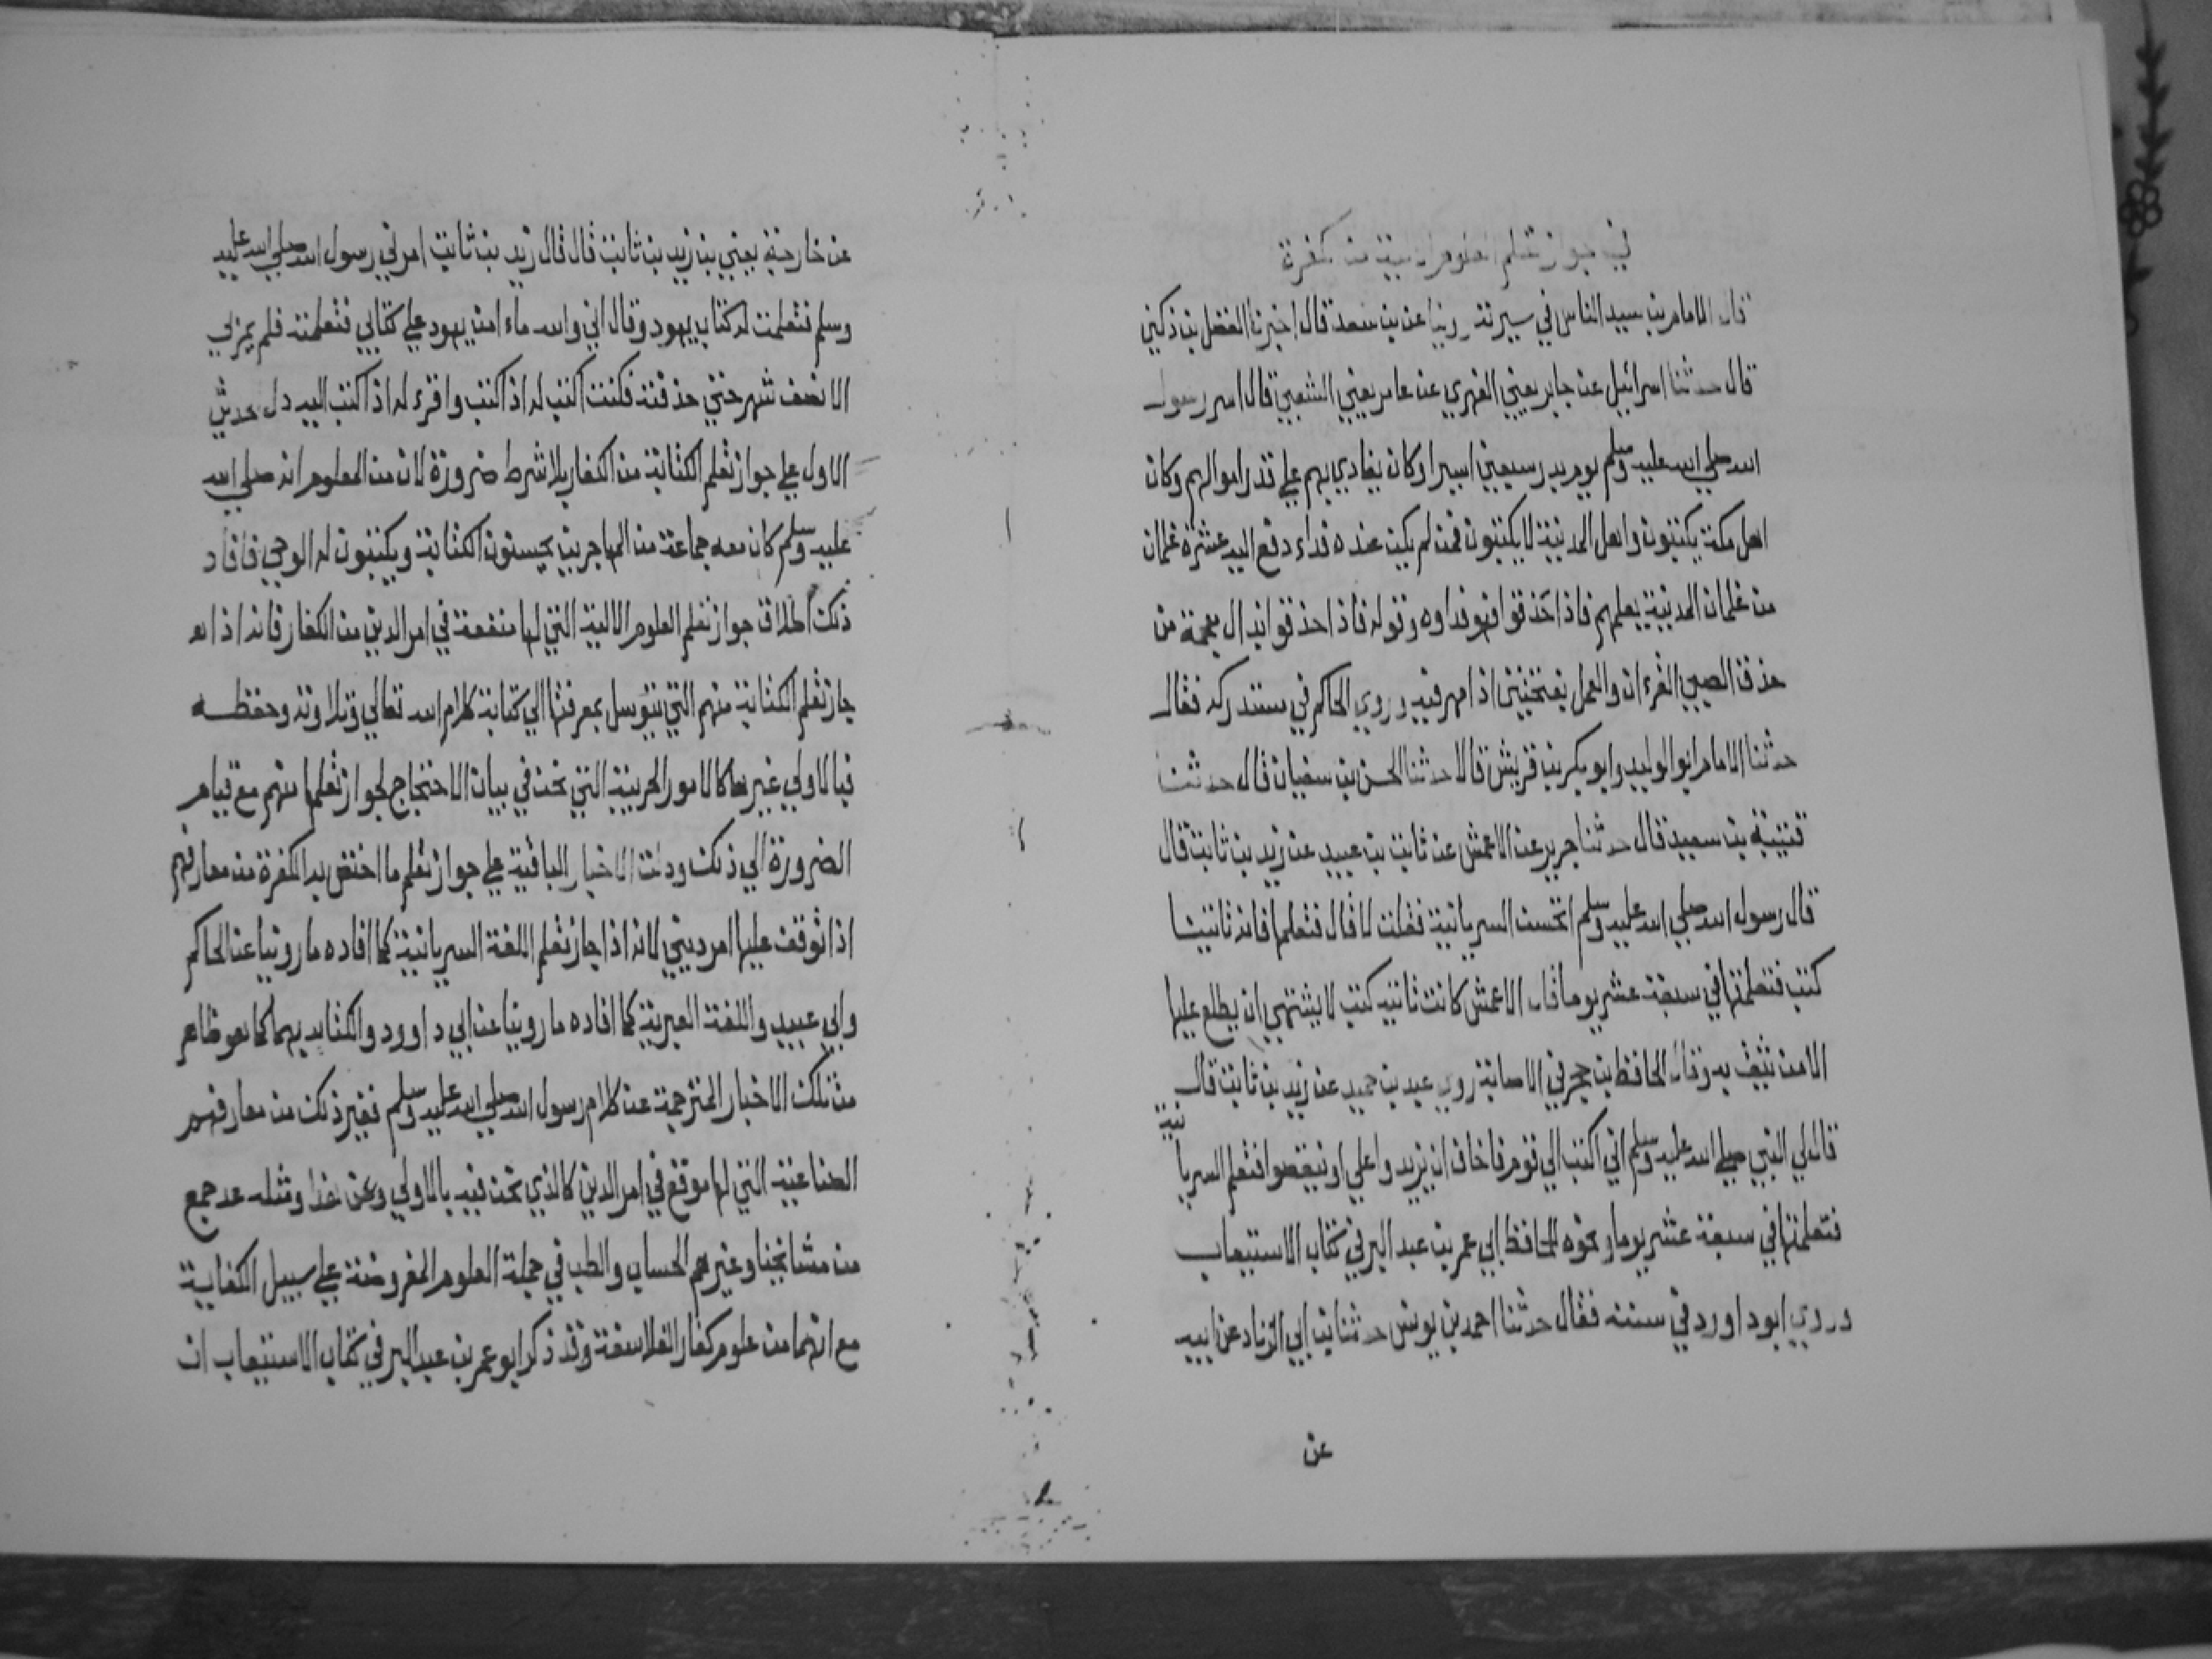 في جواز تعلم العلوم الالية من الكفرة
قال الامام بن سيد الناس في سيرته روينا عن بن سعد قال اخبرنا الفضل بن دكين
قال حدثنا اسرائيل عن جابر يعني الفهري عن عامر يعني الشعبي قال اسر رسول
الله صلي الله عليه وسلم يوم بدر سبعين اسيرا وكان يفادي بهم علي قدر اموالهم وكان
اهل مكة يكتبون واهل المدينة لا يكتبون فمن لم يكن عنده فداء دفع اليه عشرة غلمان
من غلمان المدينة يعلمهم فاذا حذقوا فهو فداوه وقوله فاذا حذقوا بذال معجمة من
حذق الصبي القرءان والعمل بفتحتين اذا مهر فيه وروي الحاكم في مستدركه فقال
حدثنا الامام ابو الوليد وابو بكر بن قريش قالا حدثنا الحسن بن سفيان قال حدثنا
قتيبة بن سعيد قال حدثنا جرير عن الاعمش عن ثابت بن عبيد عن زيد بن ثابت قال
قال رسول الله صلي الله عليه وسلم اتحسن السريانية فقلت لا قال فتعلمها فانه تاتينا
كتب فتعلمتها في سبعة عشر يوما قال الاعمش كانت تاتيه كتب لا يشتهي ان يطلع عليها
الا من يثق به وقال الحافظ بن حجر في الاصابة روي عبد بن حميد عن زيد بن ثابت قال
قال لي النبي صلي الله عليه وسلم اني اكتب الي قوم فاخاف ان يزيدوا علي او ينقصوا فتعلم السريانية
فتعلمتها في سبعة عشر يوما ونحوه للحافظ ابي عمر بن عبد البر في كتاب الاستيعاب
وروي ابو داوود في سننه فقال حدثنا احمد بن يونس حدثنا بن ابي الزناد عن ابيه
عن
عن خارجة يعني بن زيد بن ثابت قال قال زيد بن ثابت امرني رسول الله صلي الله عليه
وسلم فتعلمت له كتاب يهود وقال اني والله ماء امن يهود علي كتابي فتعلمته فلم يمر لي
الا نصف شهر حتي حذقته فكنت اكتب له اذ اكتب واقرء له اذ اكتب اليه دل حديث
الاول علي جواز تعلم الكتابة من الكفار بلا شرط ضرورة لان من المعلوم انه صلي الله
عليه وسلم كان معه جماعة من المهاجرين يحسنون الكتابة ويكتبون له الوحي فافاد
ذلك اطلاق جواز تعلم العلوم الالية التي لها منفعة في امر الدين من الكفار فانه اذا
جاز تعلم الكتابة منهم التي يتوسل بمعرفتها الي كتابة كلام الله تعالي وتلاوته وحفظه
فبالاولي غيرها كالامور الحربية التي نحن في بيان الاحتجاج لجواز تعلمها منهم مع قيام
الضرورة الي ذلك ودلت الاخبار الباقية علي جواز تعلم ما اختص به الكفرة من معارفهم
اذا توقف عليها امر ديني لانه اذا جاز تعلم اللغة السريانية كما افاده ما روينا عن الحاكم
وابي عبيد واللغة العبرية كما افاده ما روينا عن ابي داوود والكتابة بهما كما هو ظاهر
من تلك الاخبار المترجمة عن كلام رسول الله صلي الله عليه وسلم فغير ذلك من معارفهم
الصناعية التي لها موقع في امر الدين كالذي نحن فيه بالاولي وعن هذا ومثله عد جمع
من مشائخنا وغيرهم الحساب والطب في جملة العلوم المفروضة علي سبيل الكفاية
مع انهما من علوم كفار الفلاسفة وقد ذكر ابو عمر بن عبد البر في كتاب الاستيعاب ان